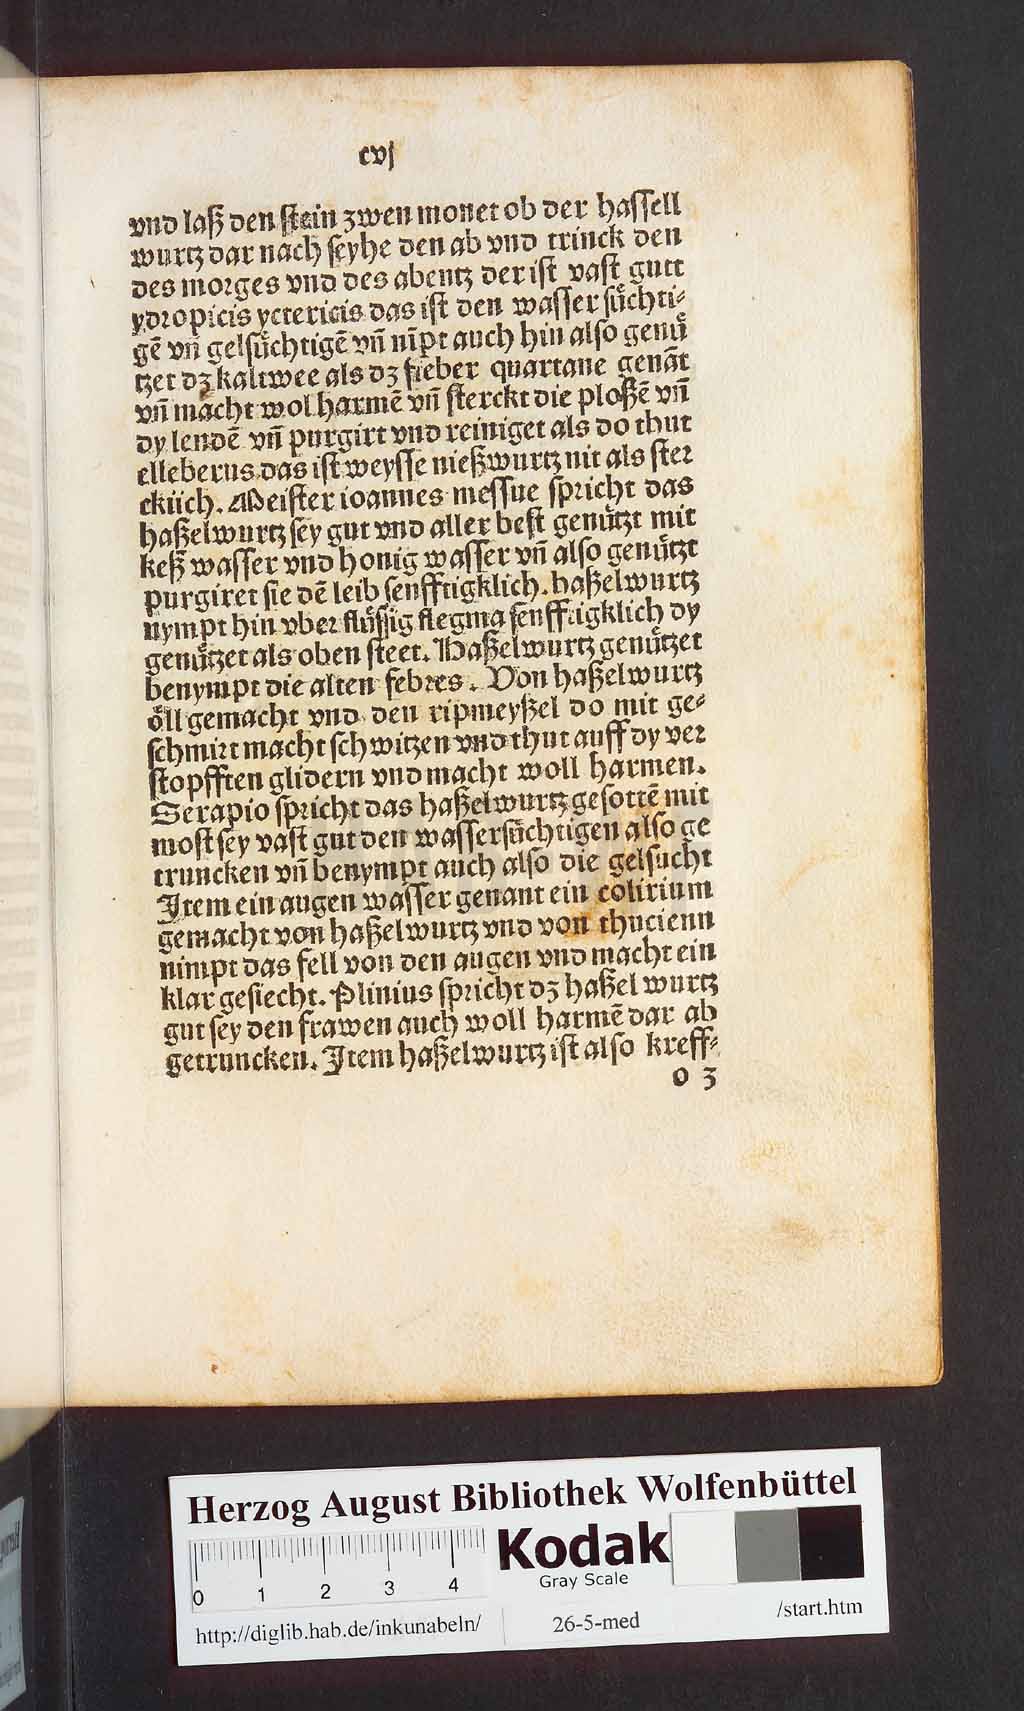 cvj
vnd laß den stein zwen monet ob der hassell
wurtz dar nach seyhe den ab vnd trinck den
des morges vnd des abentz der ist vast gutt
ydropicis yctericis das ist den wasser suͤchti⸗
gē vn̄ gelsuͤchtigē vn̄ nīpt auch hin also genuͤ
tzet dz kaltwee als dz fieber quartane genāt
vn̄ macht wol harmē vn̄ sterckt die ploßē vn̄
dy lendē vn̄ purgirt vnd reiniget als do thut
elleberus das ist weysse nießwurtz nit als ster
cklich. Meister ioannes messue spricht das
haßelwurtz sey gut vnd aller best genuͤtzt mit
keß wasser vnd honig wasser vn̄ also genuͤtzt
purgiret sie dē leib senfftigklich. haßelwurtz
nympt hin vber fluͤssig flegma senfftigklich dy
genuͤtzet als oben steet. Haßelwurtz genuͤtzet
benympt die alten febres. Von haßelwurtz
oͤll gemacht vnd den ripmeyßel do mit ge⸗
schmirt macht schwitzen vnd thut auff dy ver
stopfften glidern vnd macht woll harmen.
Serapio spricht das haßelwurtz gesottē mit
most sey vast gut den wassersuͤchtigen also ge
truncken vn̄ benympt auch also die gelsucht
Item ein augen wasser genant ein colirium
gemacht von haßelwurtz vnd von thucienn
nimpt das fell von den augen vnd macht ein
klar gesiecht. Plinius spricht dz haßel wurtz
gut sey den frawen auch woll harmē dar ab
getruncken. Item haßelwurtz ist also kreff⸗
o 3
Herzog August Bibliothek Wolfenbüttel
Kodak
Gray Scale
0 1 2 3 4
http://diglib.hab.de/inkunabeln/ 26-5-med /start.htm